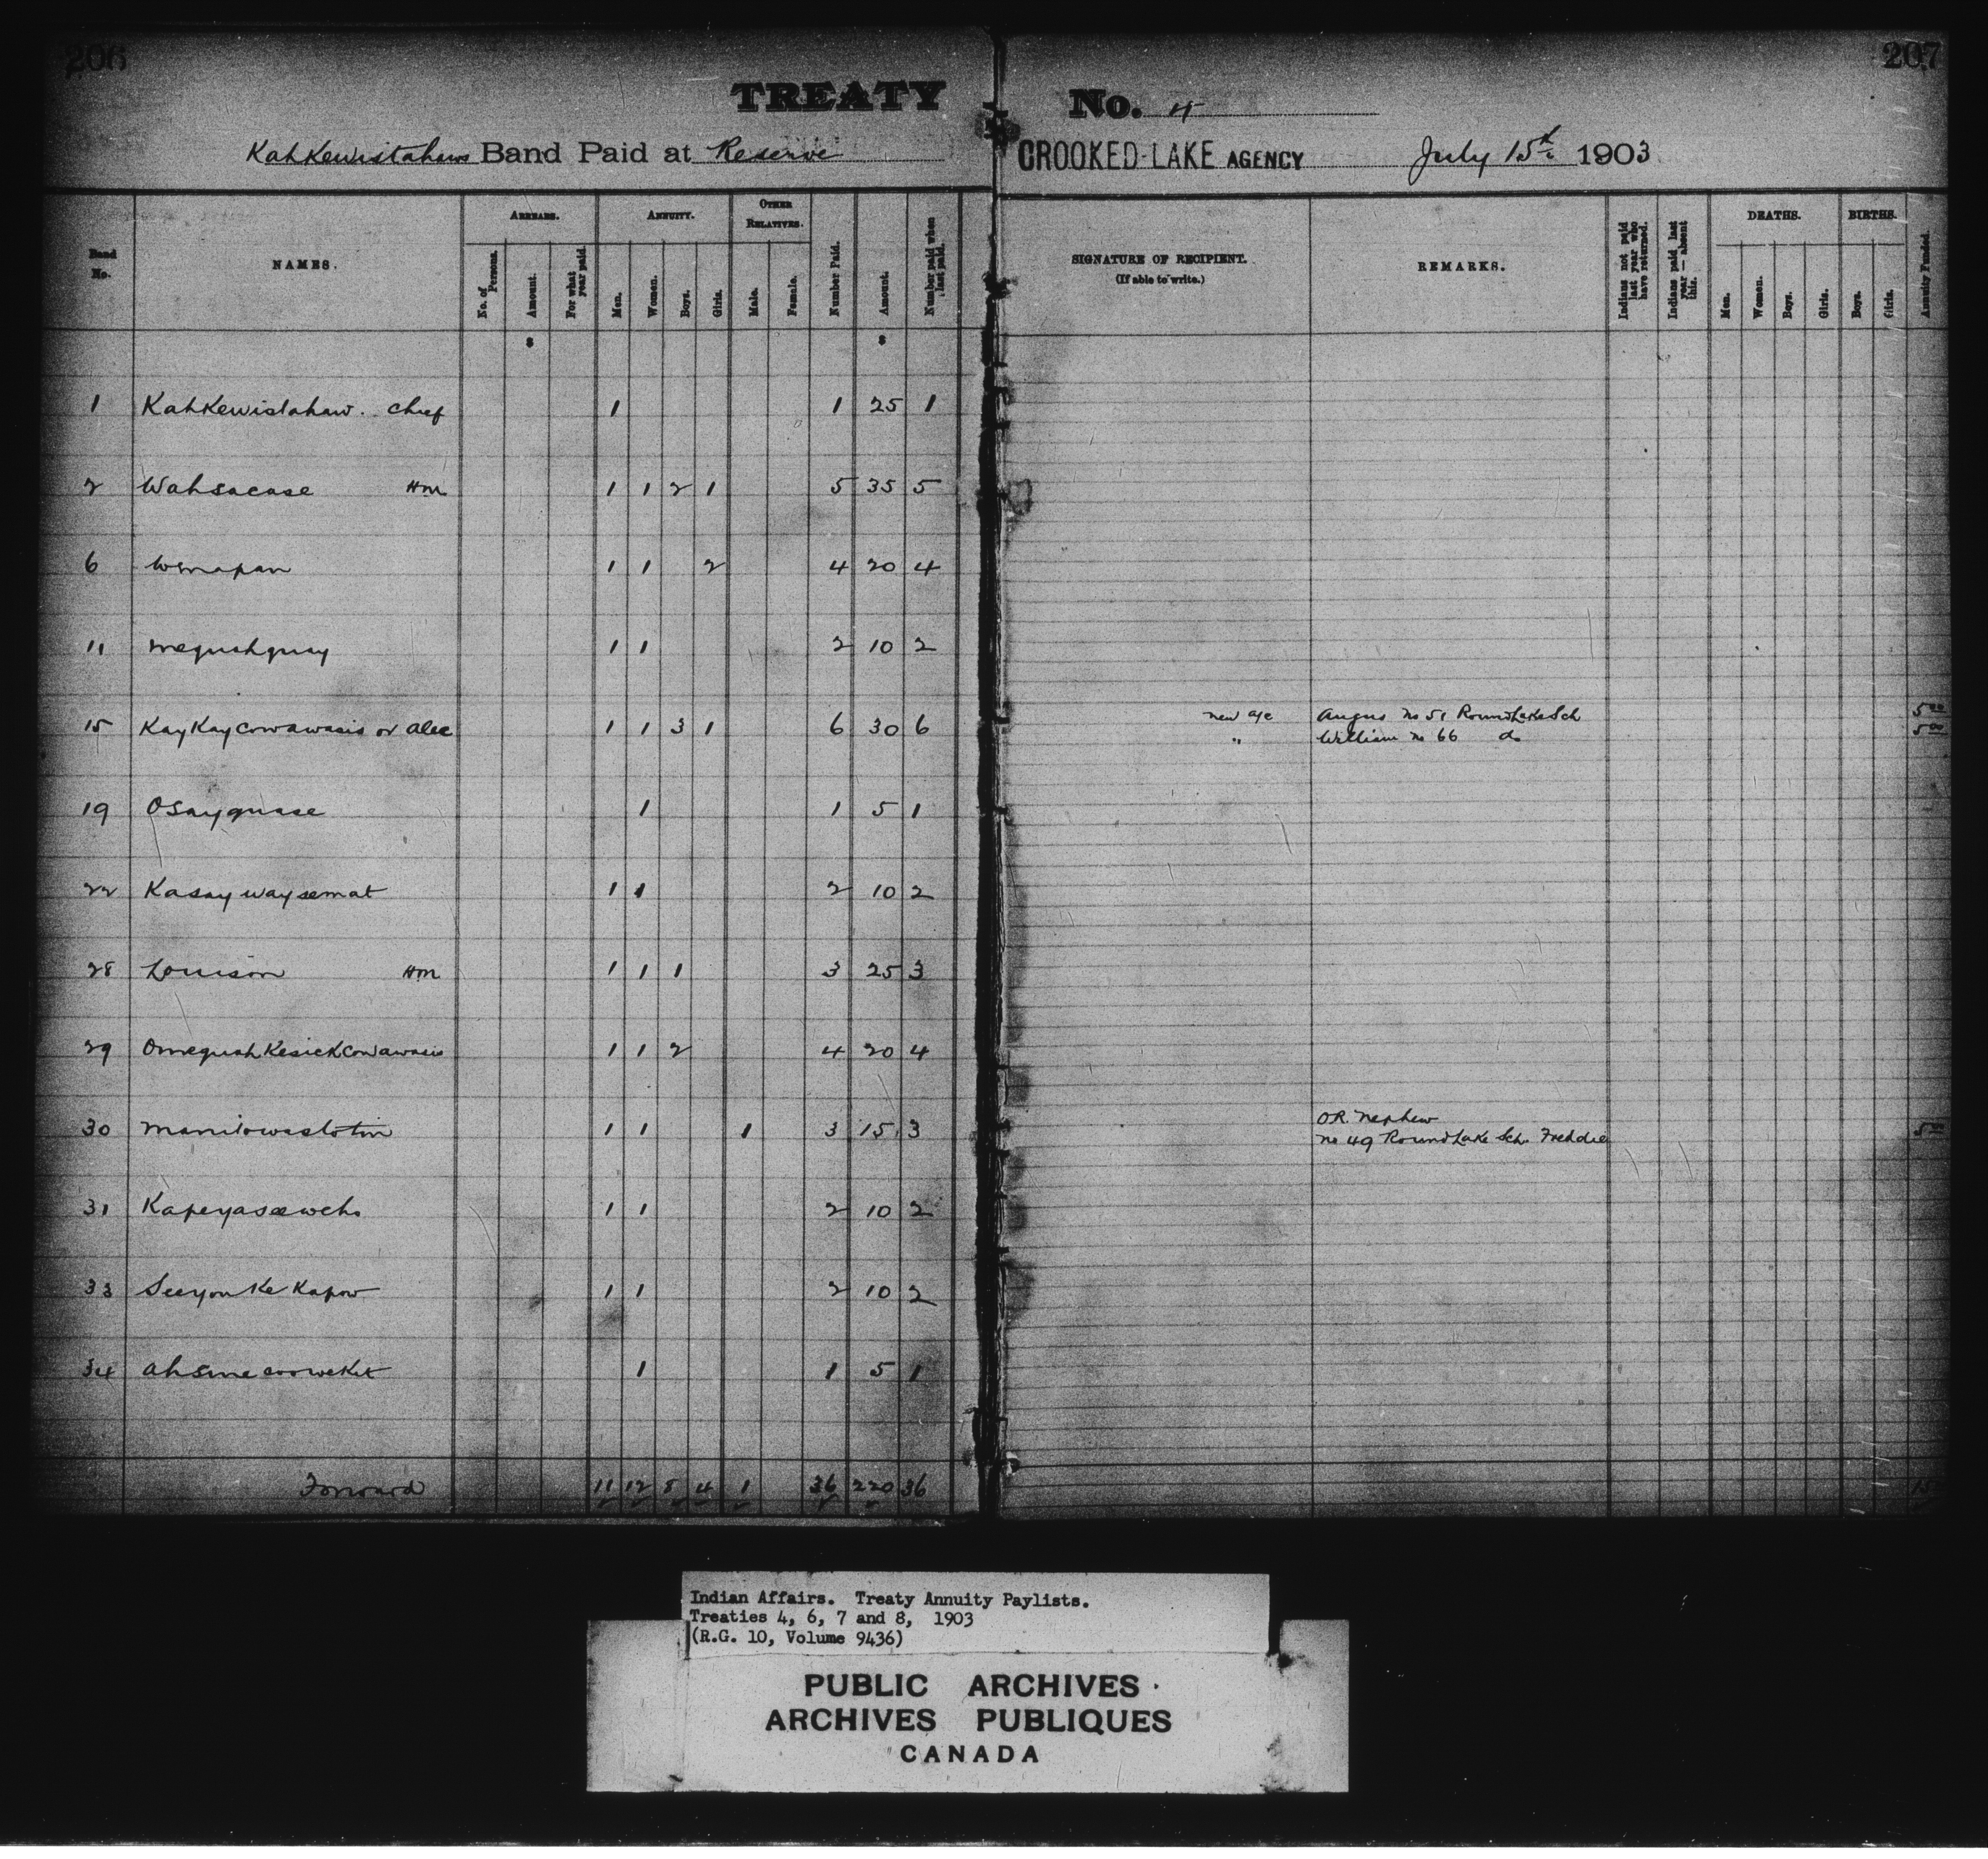 206
207
TREATY No. 4
Kahkewistahaws Band Paid at Reserve
CROOKED LAKE AGENCY July 15th 1903
Band No.
NAMES.
ARREARS.
No. of Persons.
Amount.
For what year paid.
ANNUITY.
Men.
Women.
Boys.
Girls.
OTHER RELATIVES.
Male.
Female.
Number Paid.
Amount.
Number paid when last paid.
SIGNATURE OF RECIPIENT.
(If able to write.)
REMARKS.
Indians not paid last year who have returned.
Indians paid last year — absent this.
DEATHS.
Men.
Women.
Boys.
Girls.
BIRTHS.
Boys.
Girls.
Annuity Funded.
$ $
1 Kahkewistahaw. Chief 1 1 25 1
2 Wahsacase Hm 1 1 2 1 5 35 5
6 Wmapan 1 1 2 4 20 4
11 Mequahquay 1 1 2 10 2
15 KayKaycowawasis or Alec 1 1 3 1 6 30 6 new a/c Angus No 51 Round Lake Sch 5 00
" William No 66 do 5 00
19 Osayquase 1 1 5 1
22 Kasaywaysemat 1 1 2 10 2
28 Louison Hm 1 1 1 3 25 3
29 OmequahKesickcowawasis 1 1 2 4 20 4
30 Manitowastotin 1 1 1 3 15 3 OR. Nephew
No 49 Round Lake Sch. Freddie 5 00
31 Kapeyasawehs 1 1 2 10 2
33 SeeyouKeKapow 1 1 2 10 2
34 1 1 5 1
Forward 11 12 8 4 1 36 220 36 15
Indian Affairs. Treaty Annuity Paylists.
Treaties 4, 6, 7 and 8, 1903
(R.G. 10, Volume 9436)
PUBLIC ARCHIVES
ARCHIVES PUBLIQUES
CANADA